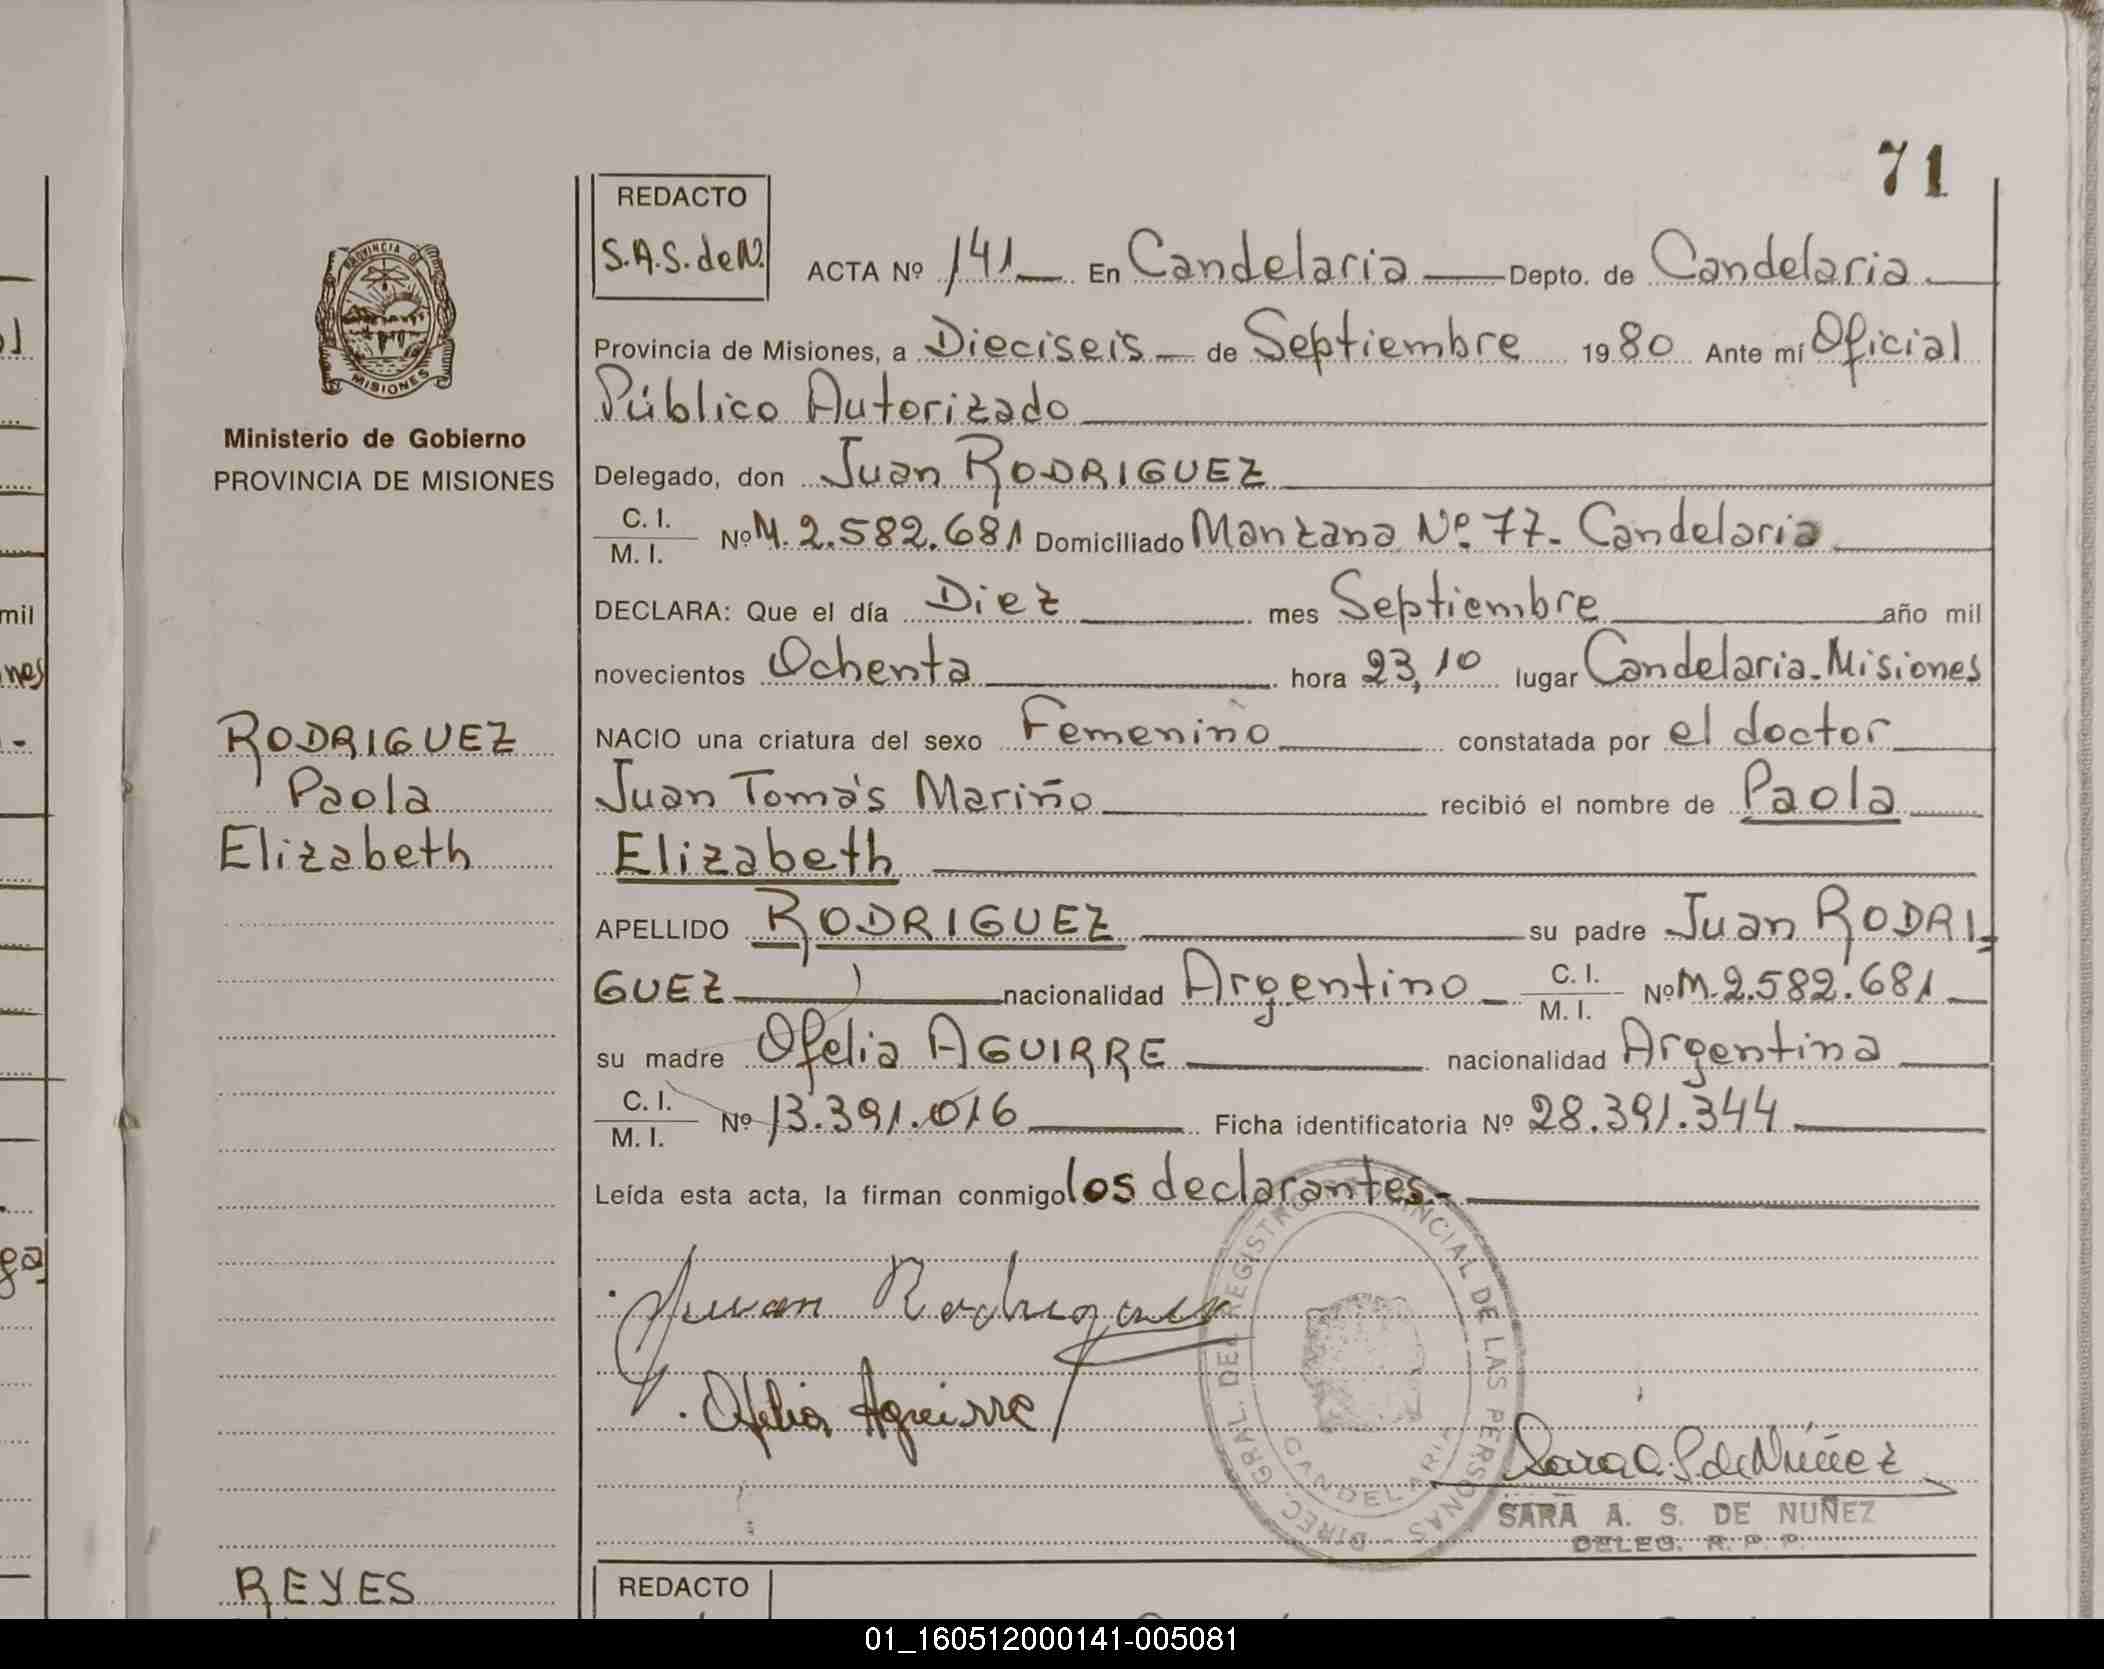 71
REDACTO
S.A.S. de N.
ACTA Nº 141 En Candelaria Depto. de Candelaria
Provincia de Misiones, a Dieciseis de Septiembre 1980 Ante mí Oficial
Público Autorizado
Delegado, don Juan RODRIGUEZ
C. I.
M. I.
Nº M. 2.582.681 Domiciliado Manzana Nº 77- Candelaria
DECLARA: Que el día Diez mes Septiembre año mil
novecientos Ochenta hora 23,10 lugar Candelaria-Misiones
NACIO una criatura del sexo Femenino constatada por el doctor
Juan Tomás Mariño recibió el nombre de Paola
Elizabeth
APELLIDO RODRIGUEZ su padre Juan RODRI-
GUEZ nacionalidad Argentino C. I.
M. I.
Nº M. 2.582.681
su madre Ofelia AGUIRRE nacionalidad Argentina
C. I.
M. I.
Nº 13.391.016 Ficha identificatoria Nº 28.391.344
Leída esta acta, la firman conmigo los declarantes.-
Juan Rodriguez
Ofelia Aguirre
DIREC. GRAL. DEL REGISTRO PROVINCIAL DE LAS PERSONAS
CANDELARIA
Sara A. S. de Núñez
SARA A. S. DE NUÑEZ
DELEG. R. P. P.
PROVINCIA DE
MISIONES
Ministerio de Gobierno
PROVINCIA DE MISIONES
RODRIGUEZ
Paola
Elizabeth
REYES
REDACTO
mil
nes
01_160512000141-005081